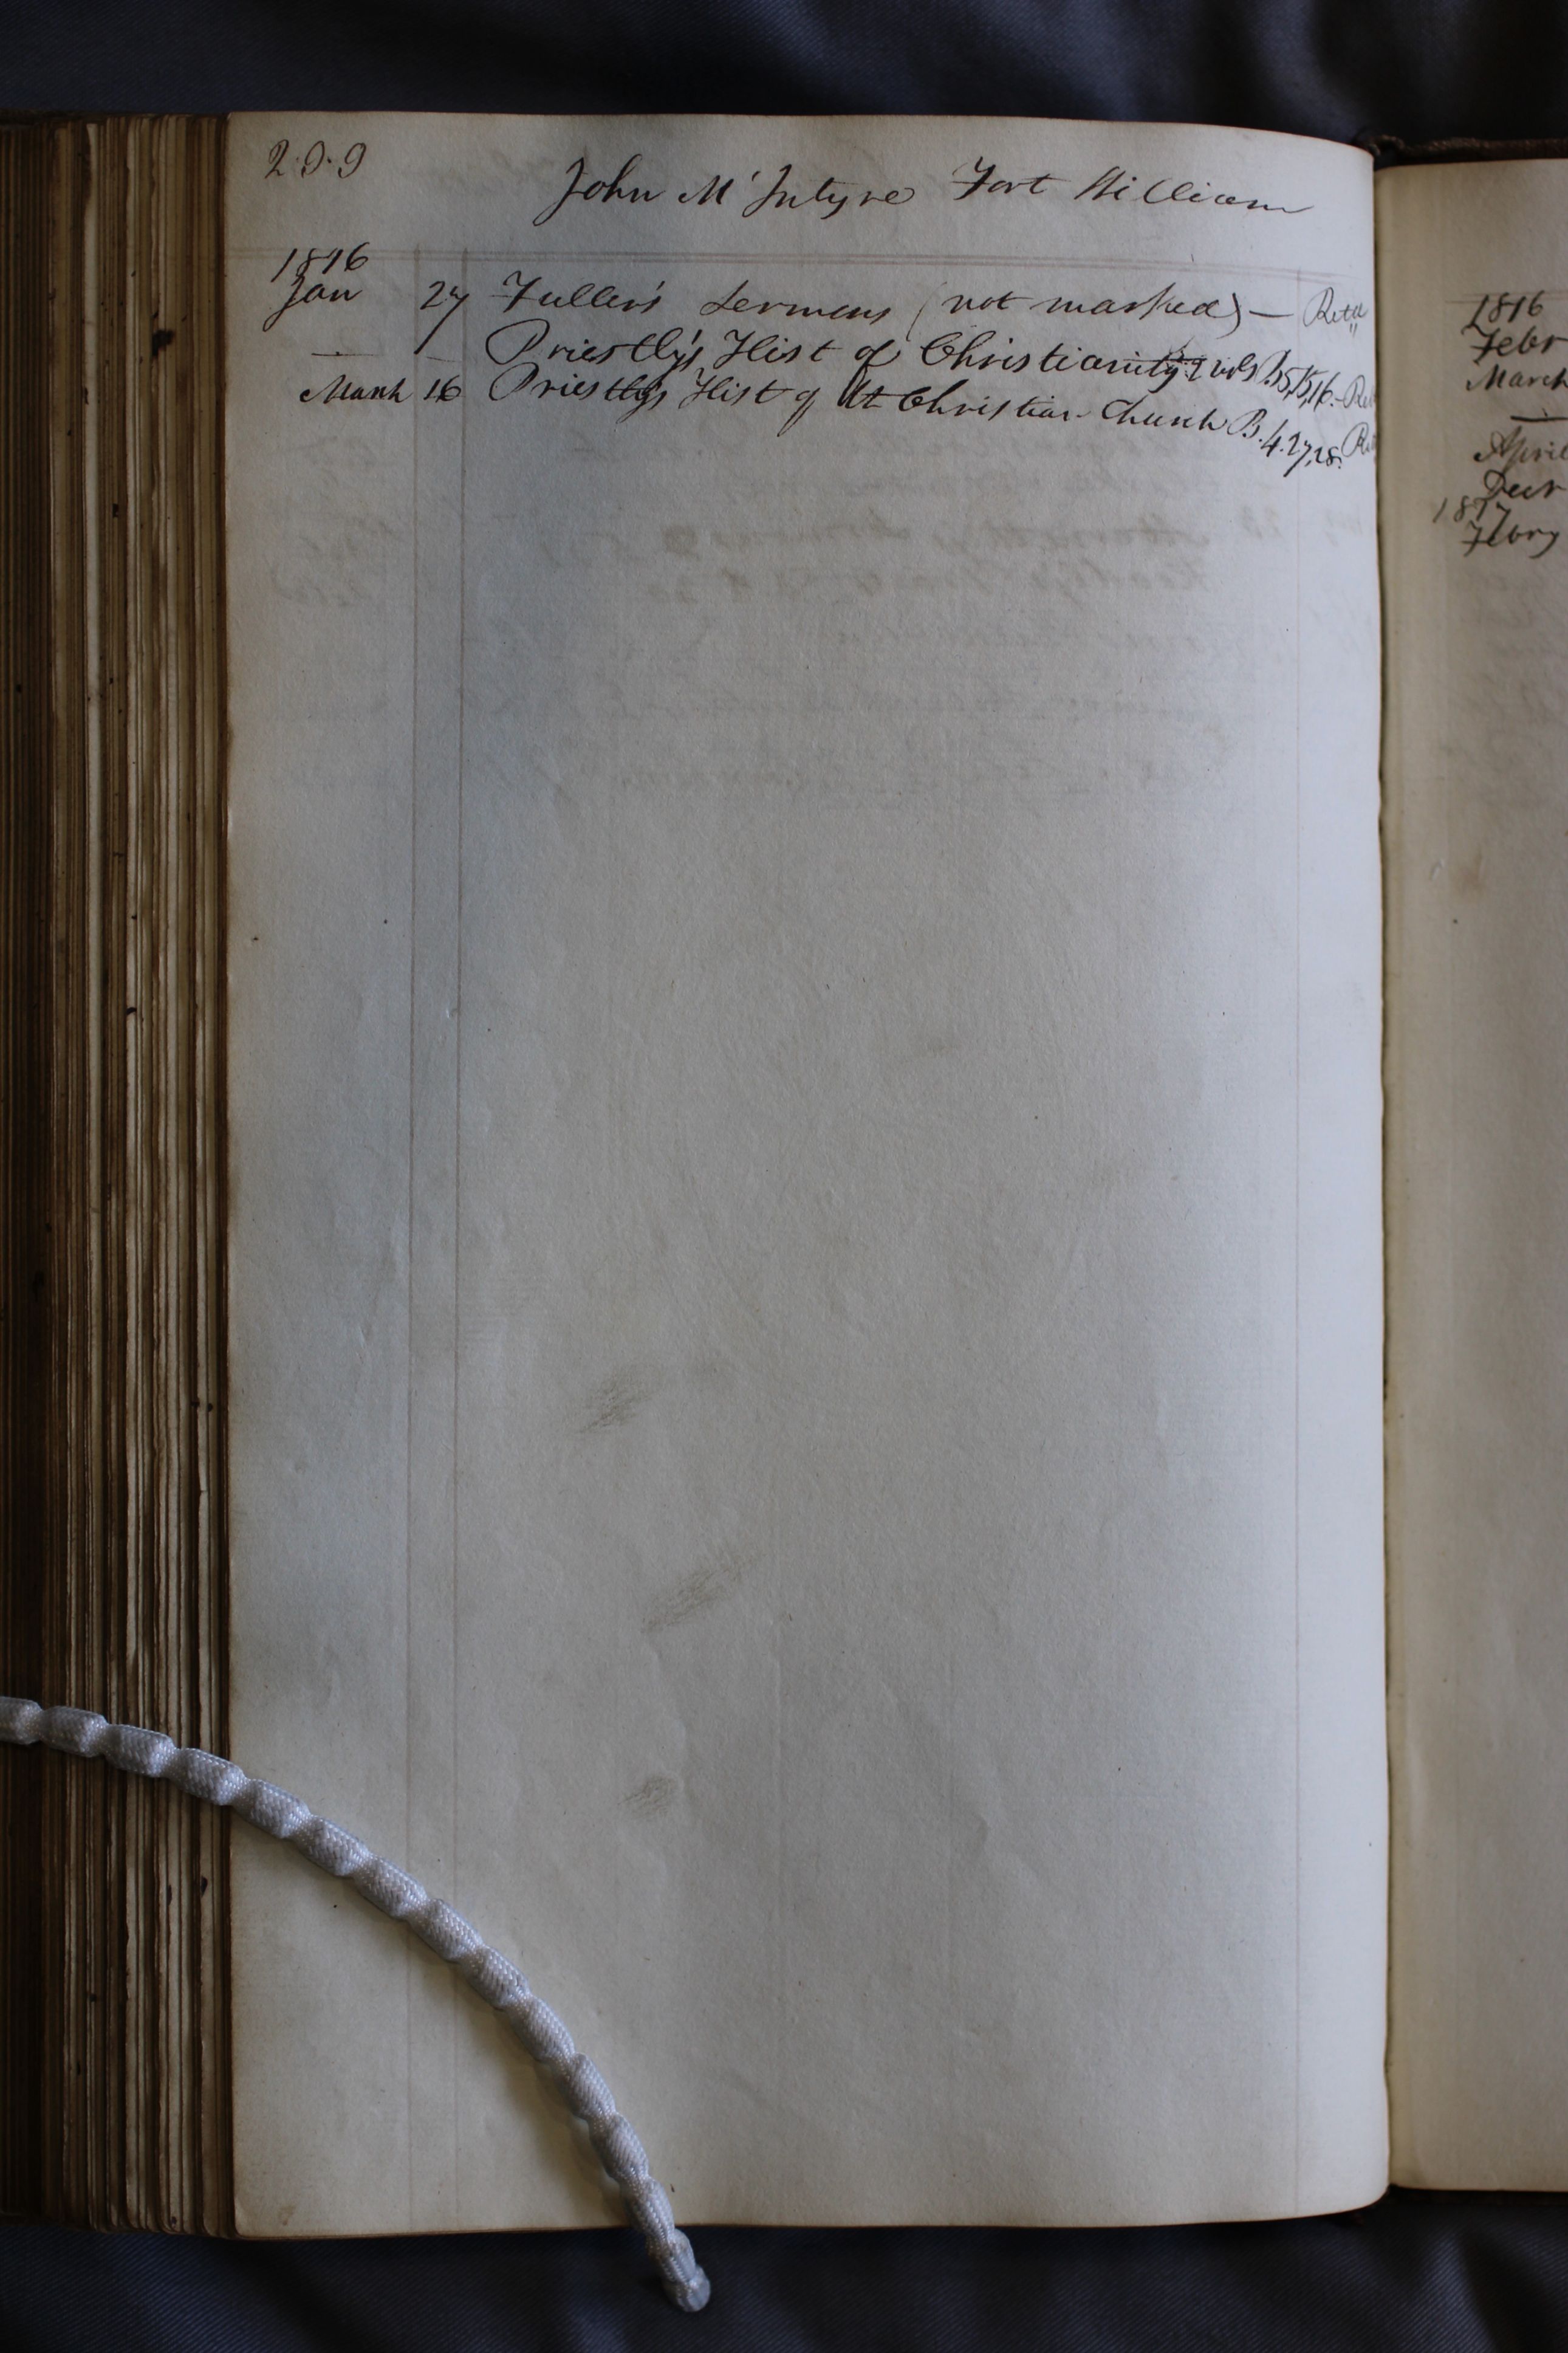 2.9.9
John M'Intyre Fort William
1816
Jan 27 Fuller's Sermons (not marked) — Retd
— — Priestly's Hist of Christianity 2 vols B.5,15,16. - Ret
March 16 Priestlys Hist of the Christian Church B.4.27,28. Ret
1816
Febr
March
—
April
Decr
1817
Febry